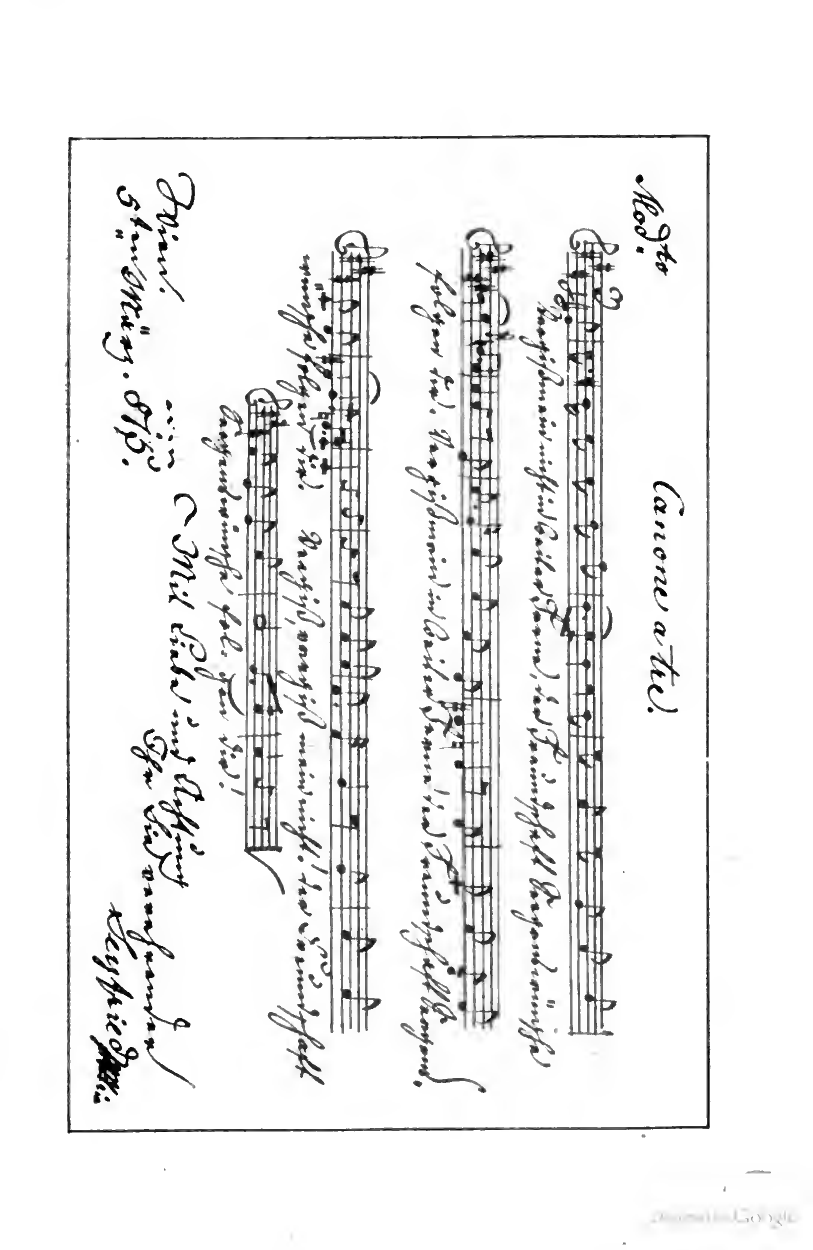 Canone a tre.
Mod.to
Vergiß mein nicht in weiter Ferne, der Freundschaft Segenswünsche
folgen dir. Vergiß mein in weiter Ferne der Freundschaft Segens.
wünsche folgen dir. Vergiß, vergiß mein nicht! der Freundschaft
Segenswünsche fol. gen dir!
Mit Liebe und Achtung
Ihr Sie verehrender
Seyfried
Wien.
5ten März. 
Digitized by Google